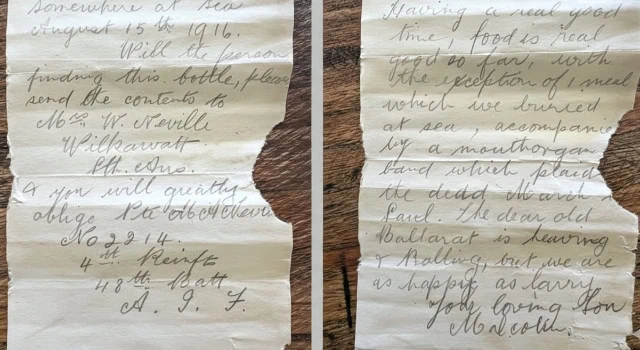 Somewhere at Sea
August 15th 1916.
Will the person
finding this bottle, please
send the contents to
Mrs W. Neville
Wilkawatt
Sth. Aus.
& you will greatly
oblige Pte M A Nevi
No 2214.
4th Reinft
48th Batt
A. I. F.
Having a real good
time, food is real
good so far, with
the exception of 1 meal
which we burried
at sea, accompanie
by a mouthorgan
band which plaid
the dead March
Saul. The dear old
Ballarat is heaving
& Rolling, but we are
as happy as larry
Your loving Son
Malcolm.